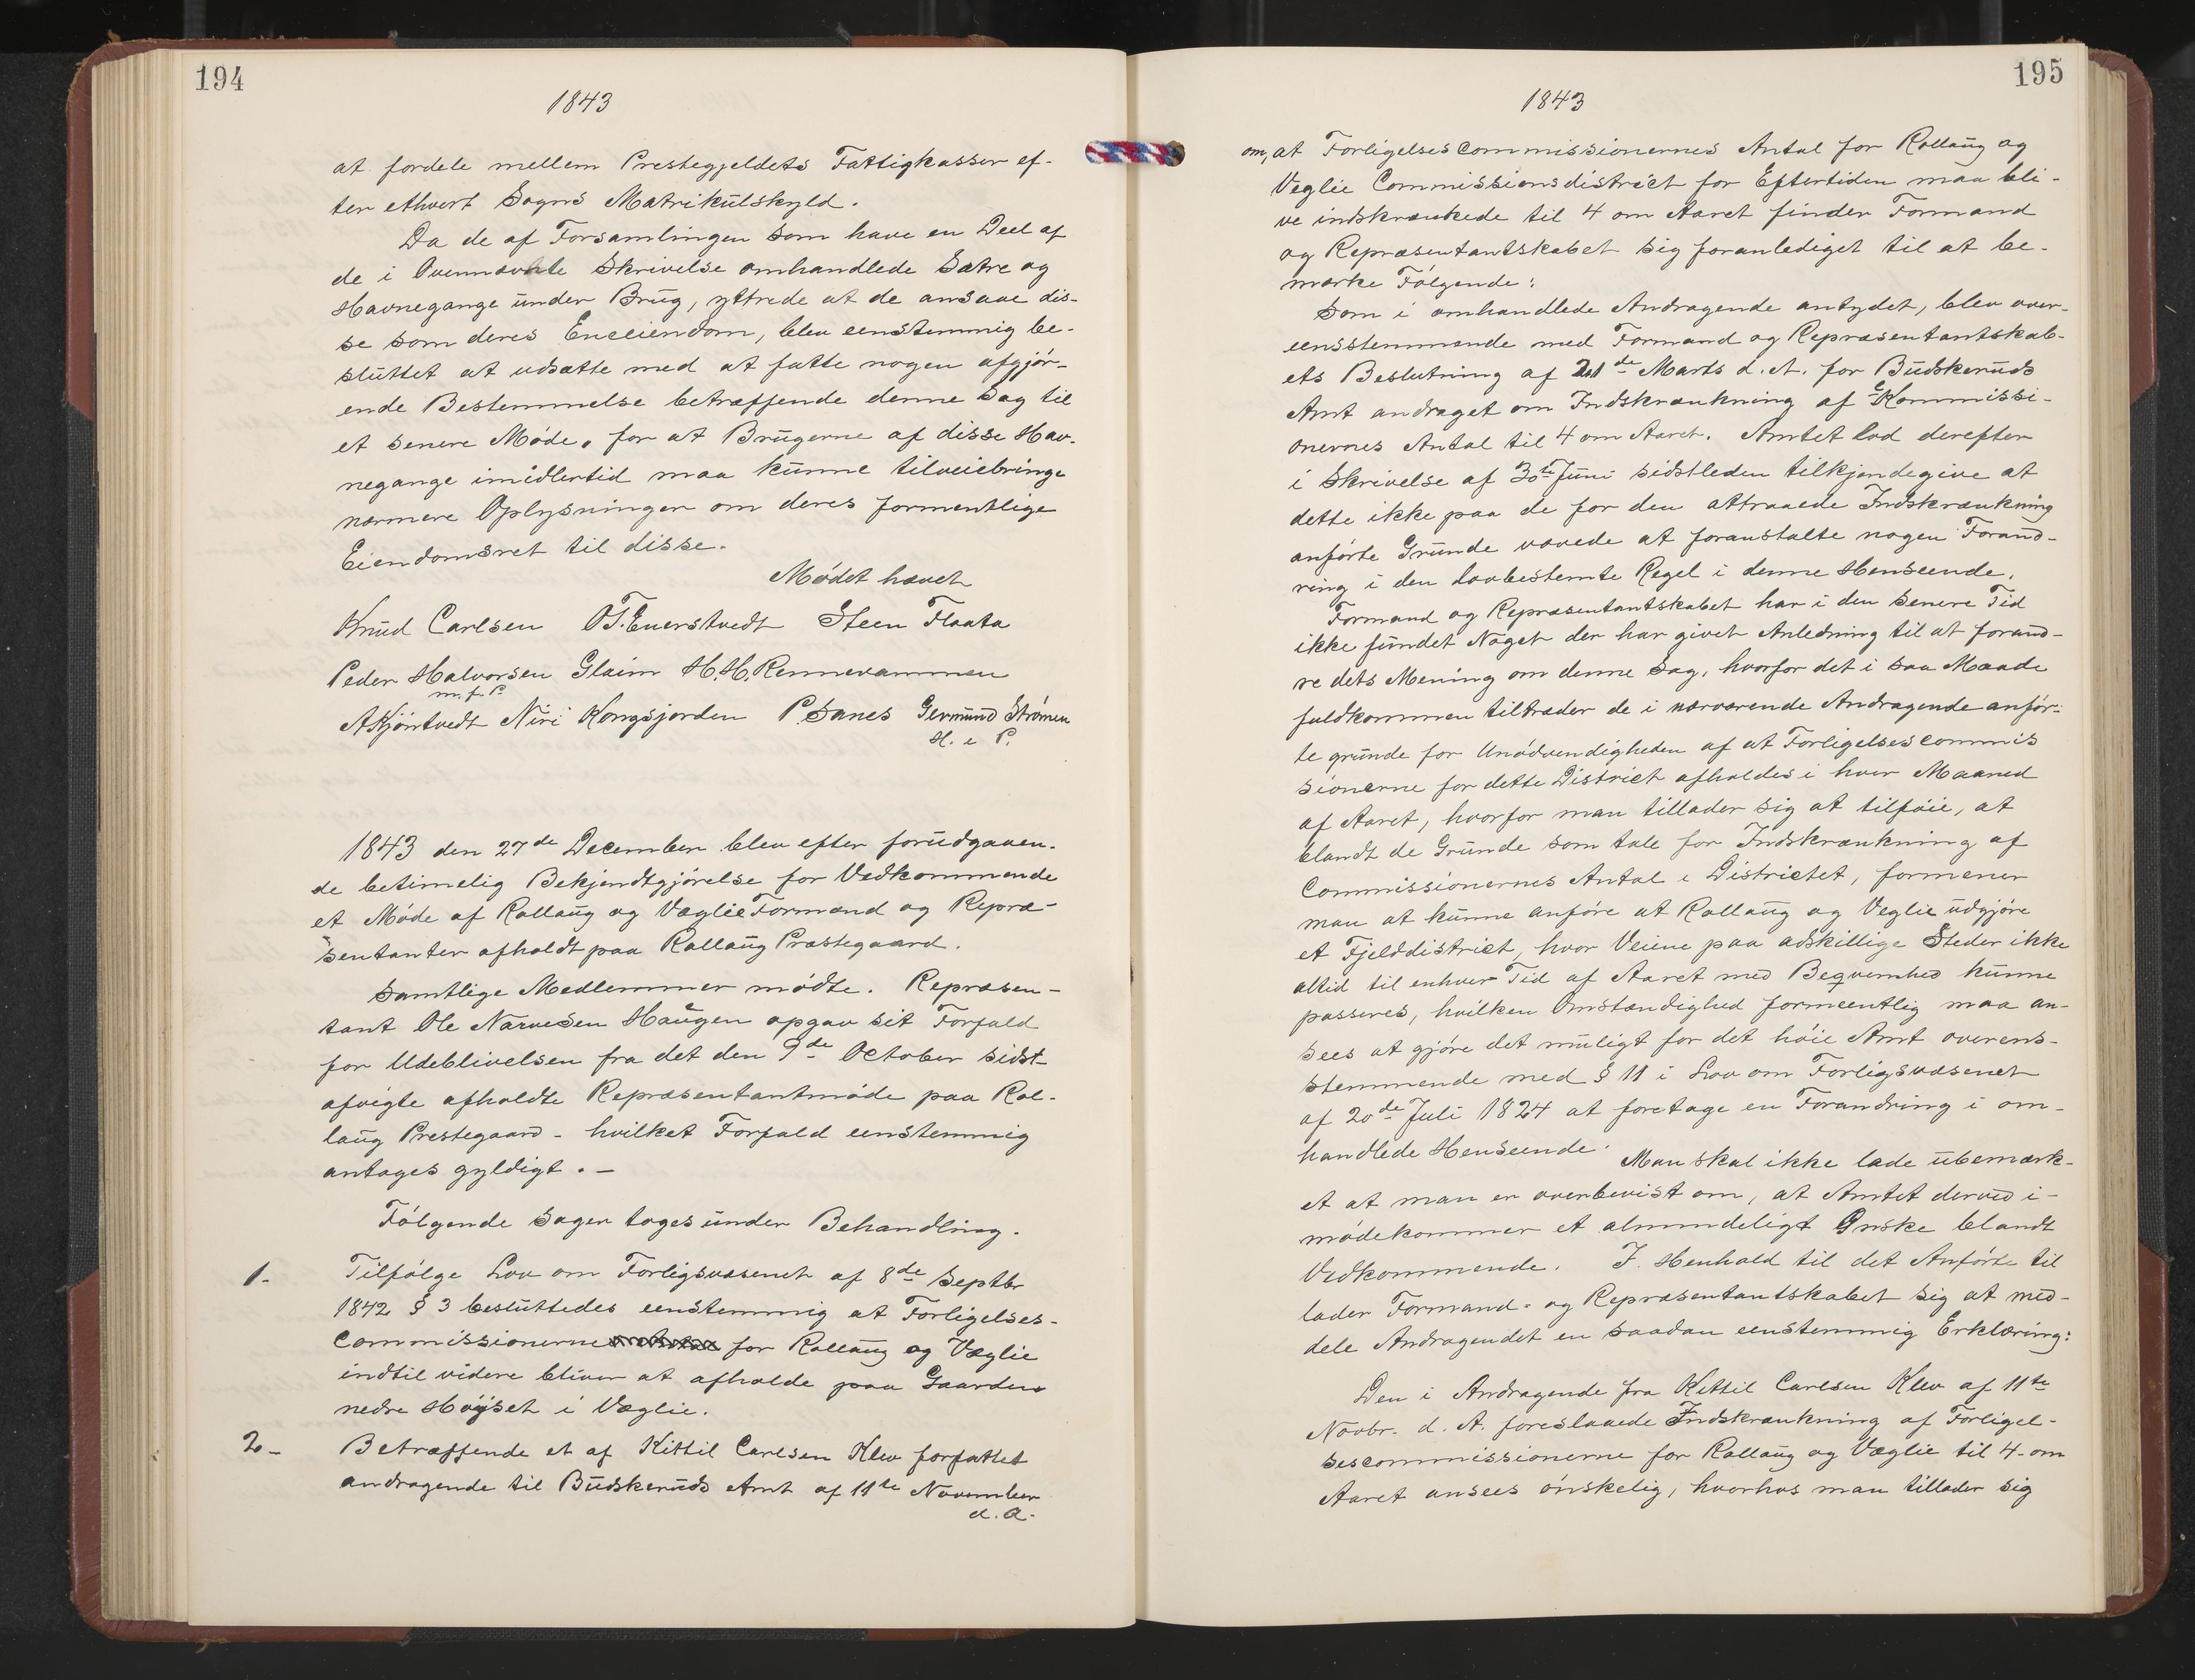 194
1843
at fordele mellem Prestegjeldets Fattigkasser ef-
ter ethvert Sogns Matrikulskyld.
Da de af Forsamlingen som have en Deel af
de i Ovennævnte Skrivelse omhandlede Sætre og
Havnegange under Brug, yttrede at de ansaae dis-
se som deres Eneeiendom, blev eenstemmig be-
sluttet at udsætte med at fatte nogen afgjør-
ende Bestemmelse betræffende denne Sag til
et senere Møde, for at Brugerne af disse Hav-
negange imidlertid maa kunne tilveiebringe
nærmere Oplysninger om deres formentlige
Eiendomsret til disse.
Mødet hævet
Knud Carlsen OT. Enerstvedt Steen Flaata
Peder Halvorsen Glaim H. H. Rennevammen
m. f. P.
AKjøntvedt Niri Kongsjorden P Sanes Germund Strømen
H. e P.
1843 den 27de December blev efter forudgaaen-
de betimelig Bekjendtgjørelse for Vedkommende
et Møde af Rollaug og Væglie Formænd og Repræ-
sentanter afholdt paa Rollaug Præstegaard.
Samtlige Medlemmer mødte. Repræsen-
tant Ole Narvesen Haugen opgav sit Forfald
for Udeblivelsen fra det den 9de October sidst-
afvigte afholdte Repræsentantmøde paa Rol-
laug Prestegaard - hvilket Forfald eenstemmig
antages gyldigt. -
Følgende Sager toges under Behandling.
1- Tilfølge Lov om Forligsvæsenet af 8de Septbr
1842 § 3 besluttedes eenstemmig at Forligelses-
Commissionerne for Rollaug og Væglie
indtil videre bliver at afholde paa Gaarden
nedre Høyset i Væglie.
2- Betræffende et af Kittil Carlsen Klev forfattet
andragende til Budskeruds Amt af 11te November
d. A.
195
1843
om, at Forligelsescommissionernes Antal for Rollaug og
Veglie Commissionsdistrict for Eftertiden maa bli-
ve indskrænkede til 4 om Aaret finder Formand
og Repræsentantskabet sig foranlediget til at be-
mærke Følgende:
Som i omhandlede Andragende antydet, blev over-
eensstemmende med Formand og Repræsentantskab-
ets Beslutning af 21de Marts d. A. for Budskeruds
Amt andraget om Indskrænkning af Kommissi-
onernes Antal til 4 om Aaret. Amtet lod derefter
i Skrivelse af 30te Juni sidstleden tilkjendegive at
dette ikke paa de for den attraaede Indskrænkning
anførte Grunde vovede at foranstalte nogen Forand-
ring i den Lovbestemte Regel i denne Henseende.
Formand og Repræsentantskabet har i den senere Tid
ikke fundet Noget der har givet Anledning til at forand-
re dets Mening om denne Sag, hvorfor det i saa Maade
fuldkommen tiltræder de i nærværende Andragende anfør-
te grunde for Unødvendigheden af at Forligelsescommis
sionerne for dette District afholdes i hver Maaned
af Aaret, hvorfor man tillader sig at tilføie, at
blandt de Grunde som tale for Indskrænkning af
Commissionernes Antal i Districtet, formener
man at kunne anføre at Rollaug og Veglie udgjøre
et Fjelddistrict, hvor Veiene paa adskillige Steder ikke
altid til enhver Tid af Aaret med Beqvemhed kunne
passeres, hvilken Omstændighed formeentlig maa an-
sees at gjøre det muligt for det høie Amt overens-
stemmende med § 11 i Lov om Forligsvæsenet
af 20de Juli 1824 at foretage en Forandring i om-
handlede Henseende. Man skal ikke lade ubemærk-
et at man er overbevist om, at Amtet derved i-
mødekommer et almindeligt Ønske blandt
Vedkommende. I Henhold til det Anførte til
lader Formand- og Repræsentantskabet sig at med-
dele Andragendet en saadan eenstemmig Erklæring:
Den i Andragende fra Kettil Carlsen Klev af 11te
Novbr. d. A. foreslaaede Indskrænkning af Forligel-
sescommissionerne for Rollaug og Væglie til 4-om
Aaret ansees ønskelig, hvorhos man tillader sig